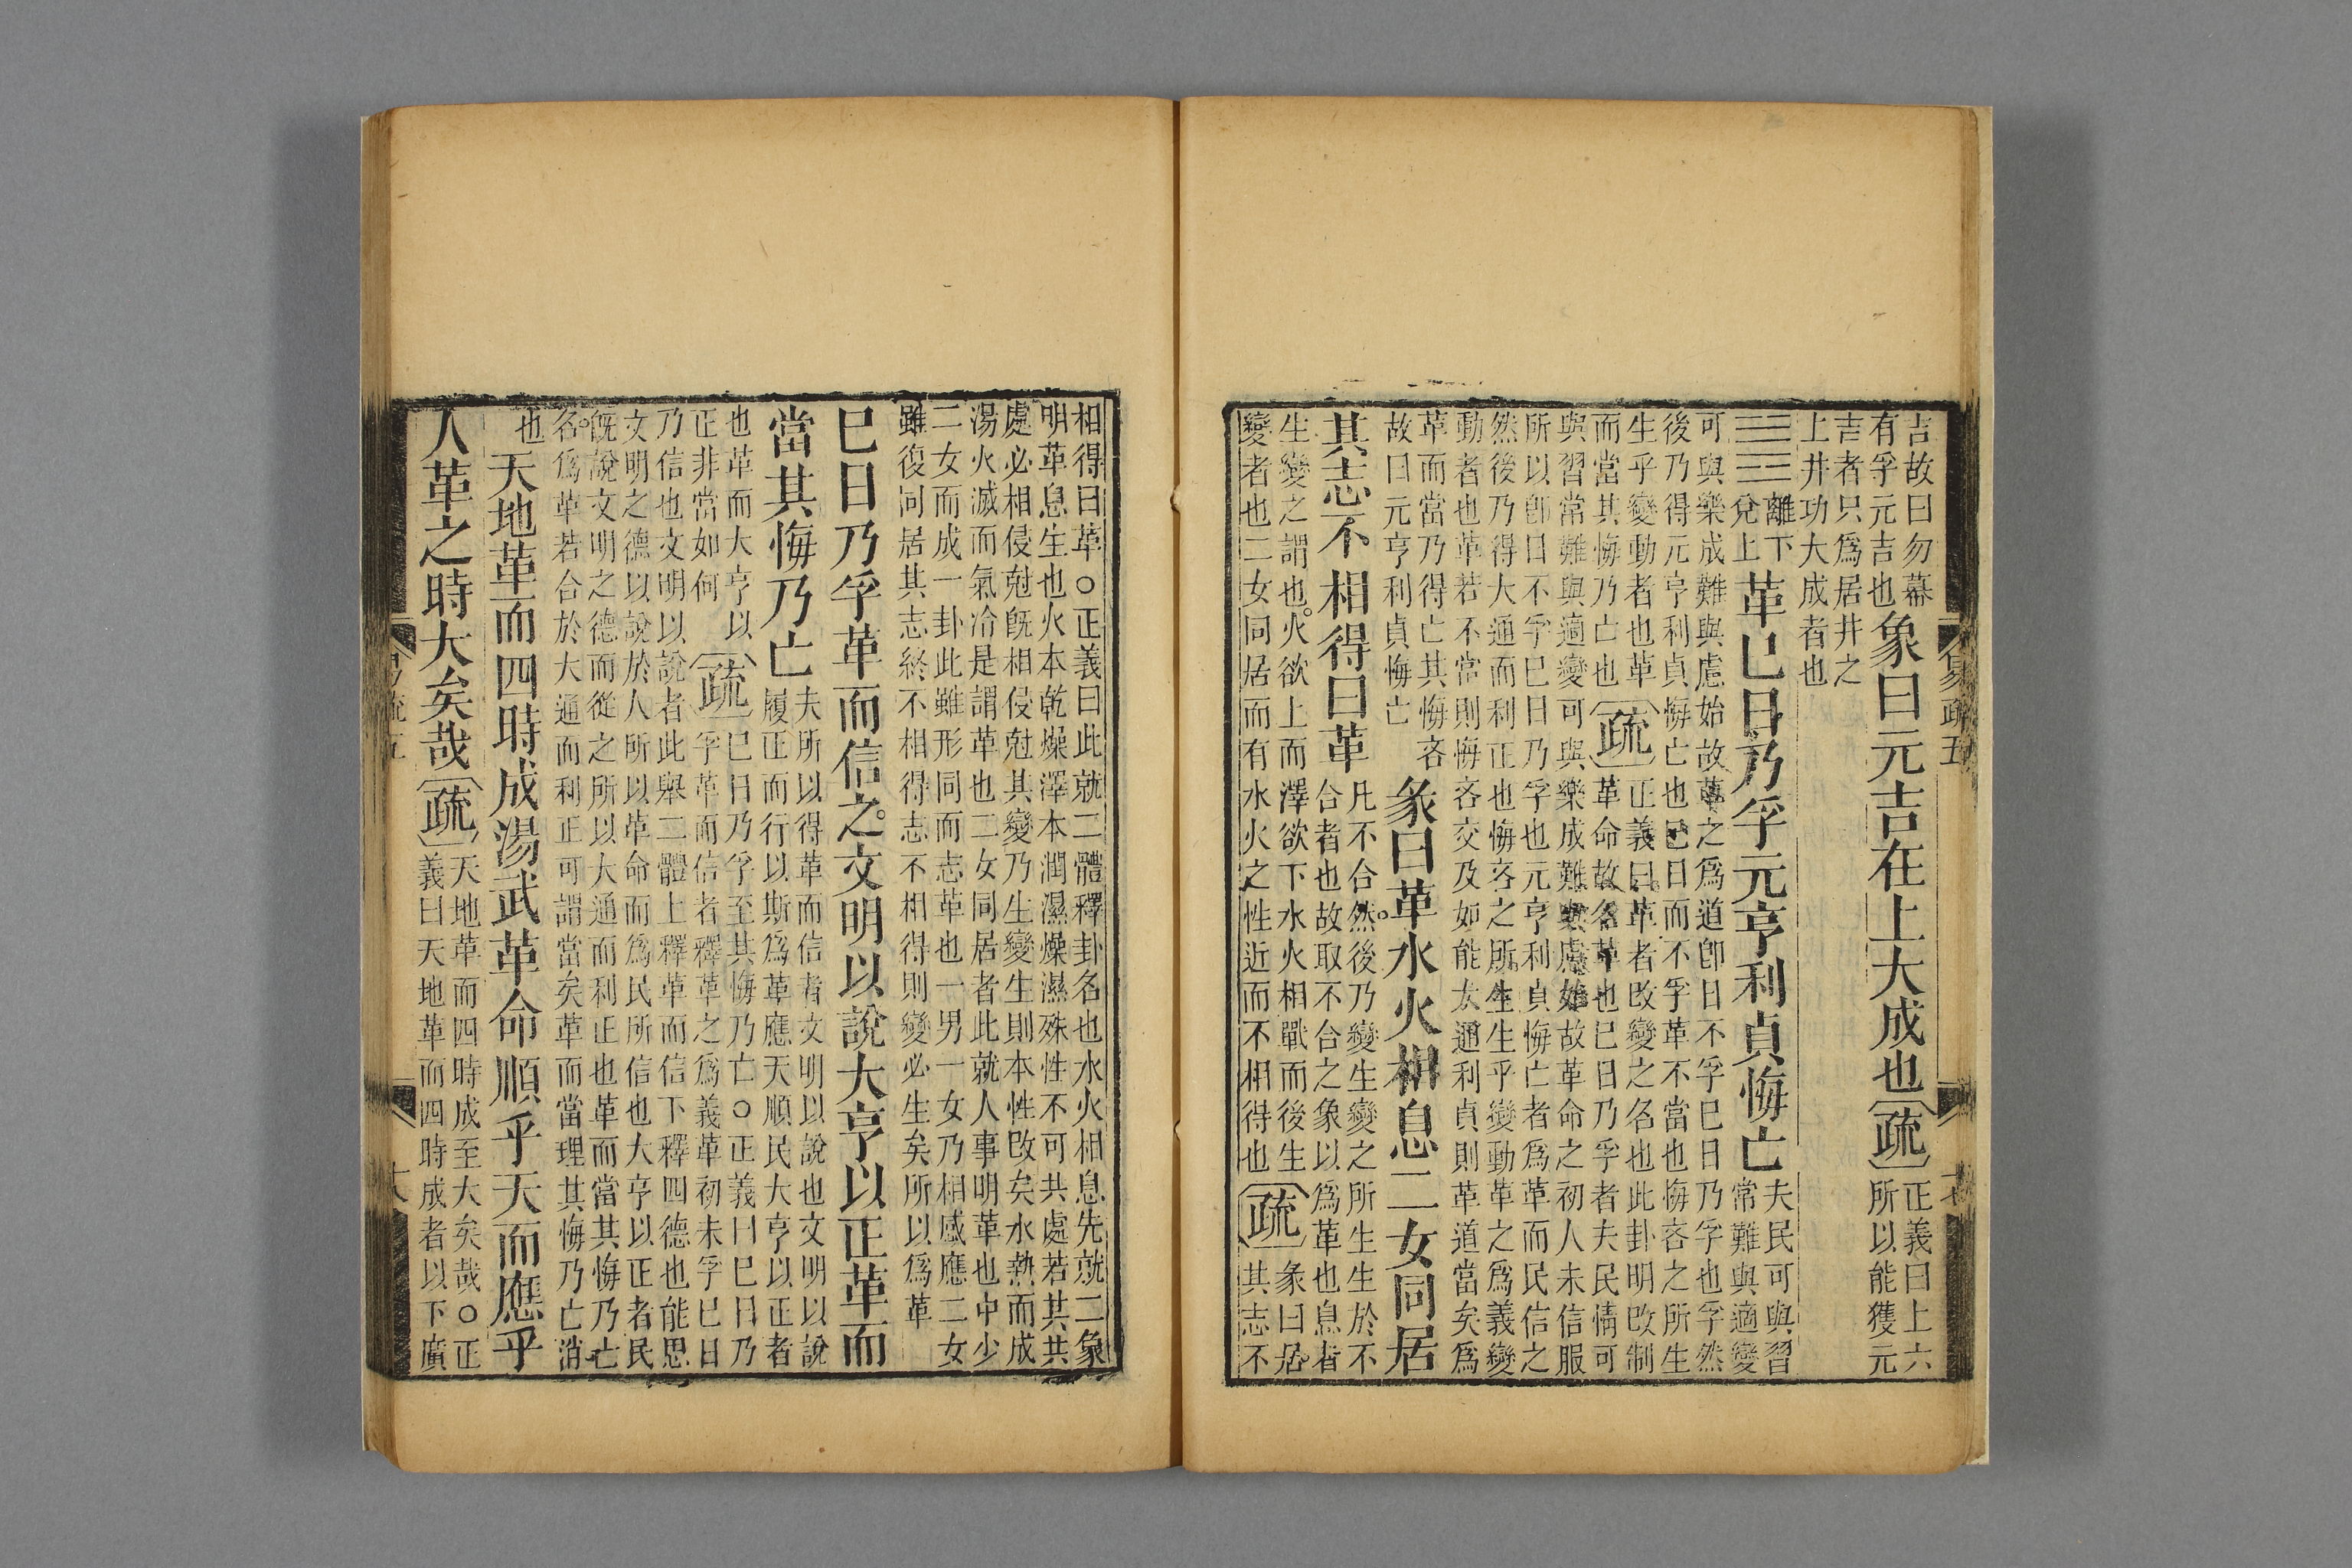 吉故曰勿幕
有孚元吉也
象曰元吉在上大成也
疏
正義曰上六
所以能獲元
吉者只爲居井之
上井功大成者也
䷰
離下
兌上
革巳日乃孚元亨利貞悔亡
夫民可與習
常難與適變
可與樂成難與慮始故革之爲道卽日不孚巳日乃孚也孚然
後乃得元亨利貞悔亡也巳日而不孚革不當也悔吝之所生
生乎變動者也革
而當其悔乃亡也
疏
正義曰革者改變之名也此卦明改制
革命故名革也巳日乃孚者夫民情可
與習常難與適變可與樂成難與慮始故革命之初人未信服
所以卽日不孚巳日乃孚也元亨利貞悔亡者爲革而民信之
然後乃得大通而利正也悔吝之所生生乎變動革之爲義變
動者也革若不當則悔吝交及如能太通利貞則革道當矣爲
革而當乃得亡其悔吝
故曰元亨利貞悔亡
彖曰革水火相息二女同居
其志不相得曰革
凡不合然後乃變生變之所生生於不
合者也故取不合之象以爲革也息者
生變之謂也火欲上而澤欲下水火相戰而後生
變者也二女同居而有水火之性近而不相得也
疏
彖曰居
其志不
易疏五
相得曰革○正義曰此就二體釋卦名也水火相息先就二象
明革息生也火本乾燥澤本潤濕燥濕殊性不可共處若其共
處必相侵剋旣相侵剋其變乃生變生則本性改矣水熱而成
湯火滅而氣冷是謂革也二女同居者此就人事明革也中少
二女而成一卦此雖形同而志革也一男一女乃相感應二女
雖復同居其志終不相得志不相得則變必生矣所以爲革
巳日乃孚革而信之文明以說大亨以正革而
當其悔乃亡
夫所以得革而信者文明以說也文明以說
履正而行以斯爲革應天順民大亨以正者
也革而大亨以
正非當如何
疏
巳日乃孚至其悔乃亡○正義曰巳日乃
孚革而信者釋革之爲義革初未孚巳日
乃信也文明以說者此舉二體上釋革而信下釋四德也能思
文明之德以說於人所以革命而爲民所信也大亨以正者民
旣說文明之德而從之所以大通而利正也革而當其悔乃亡
名爲革若合於大通而利正可謂當矣革而當理其悔乃亡消
也
天地革而四時成湯武革命順乎天而應乎
人革之時大矣哉
疏
天地革而四時成至大矣哉○正
義曰天地革而四時成者以下廣